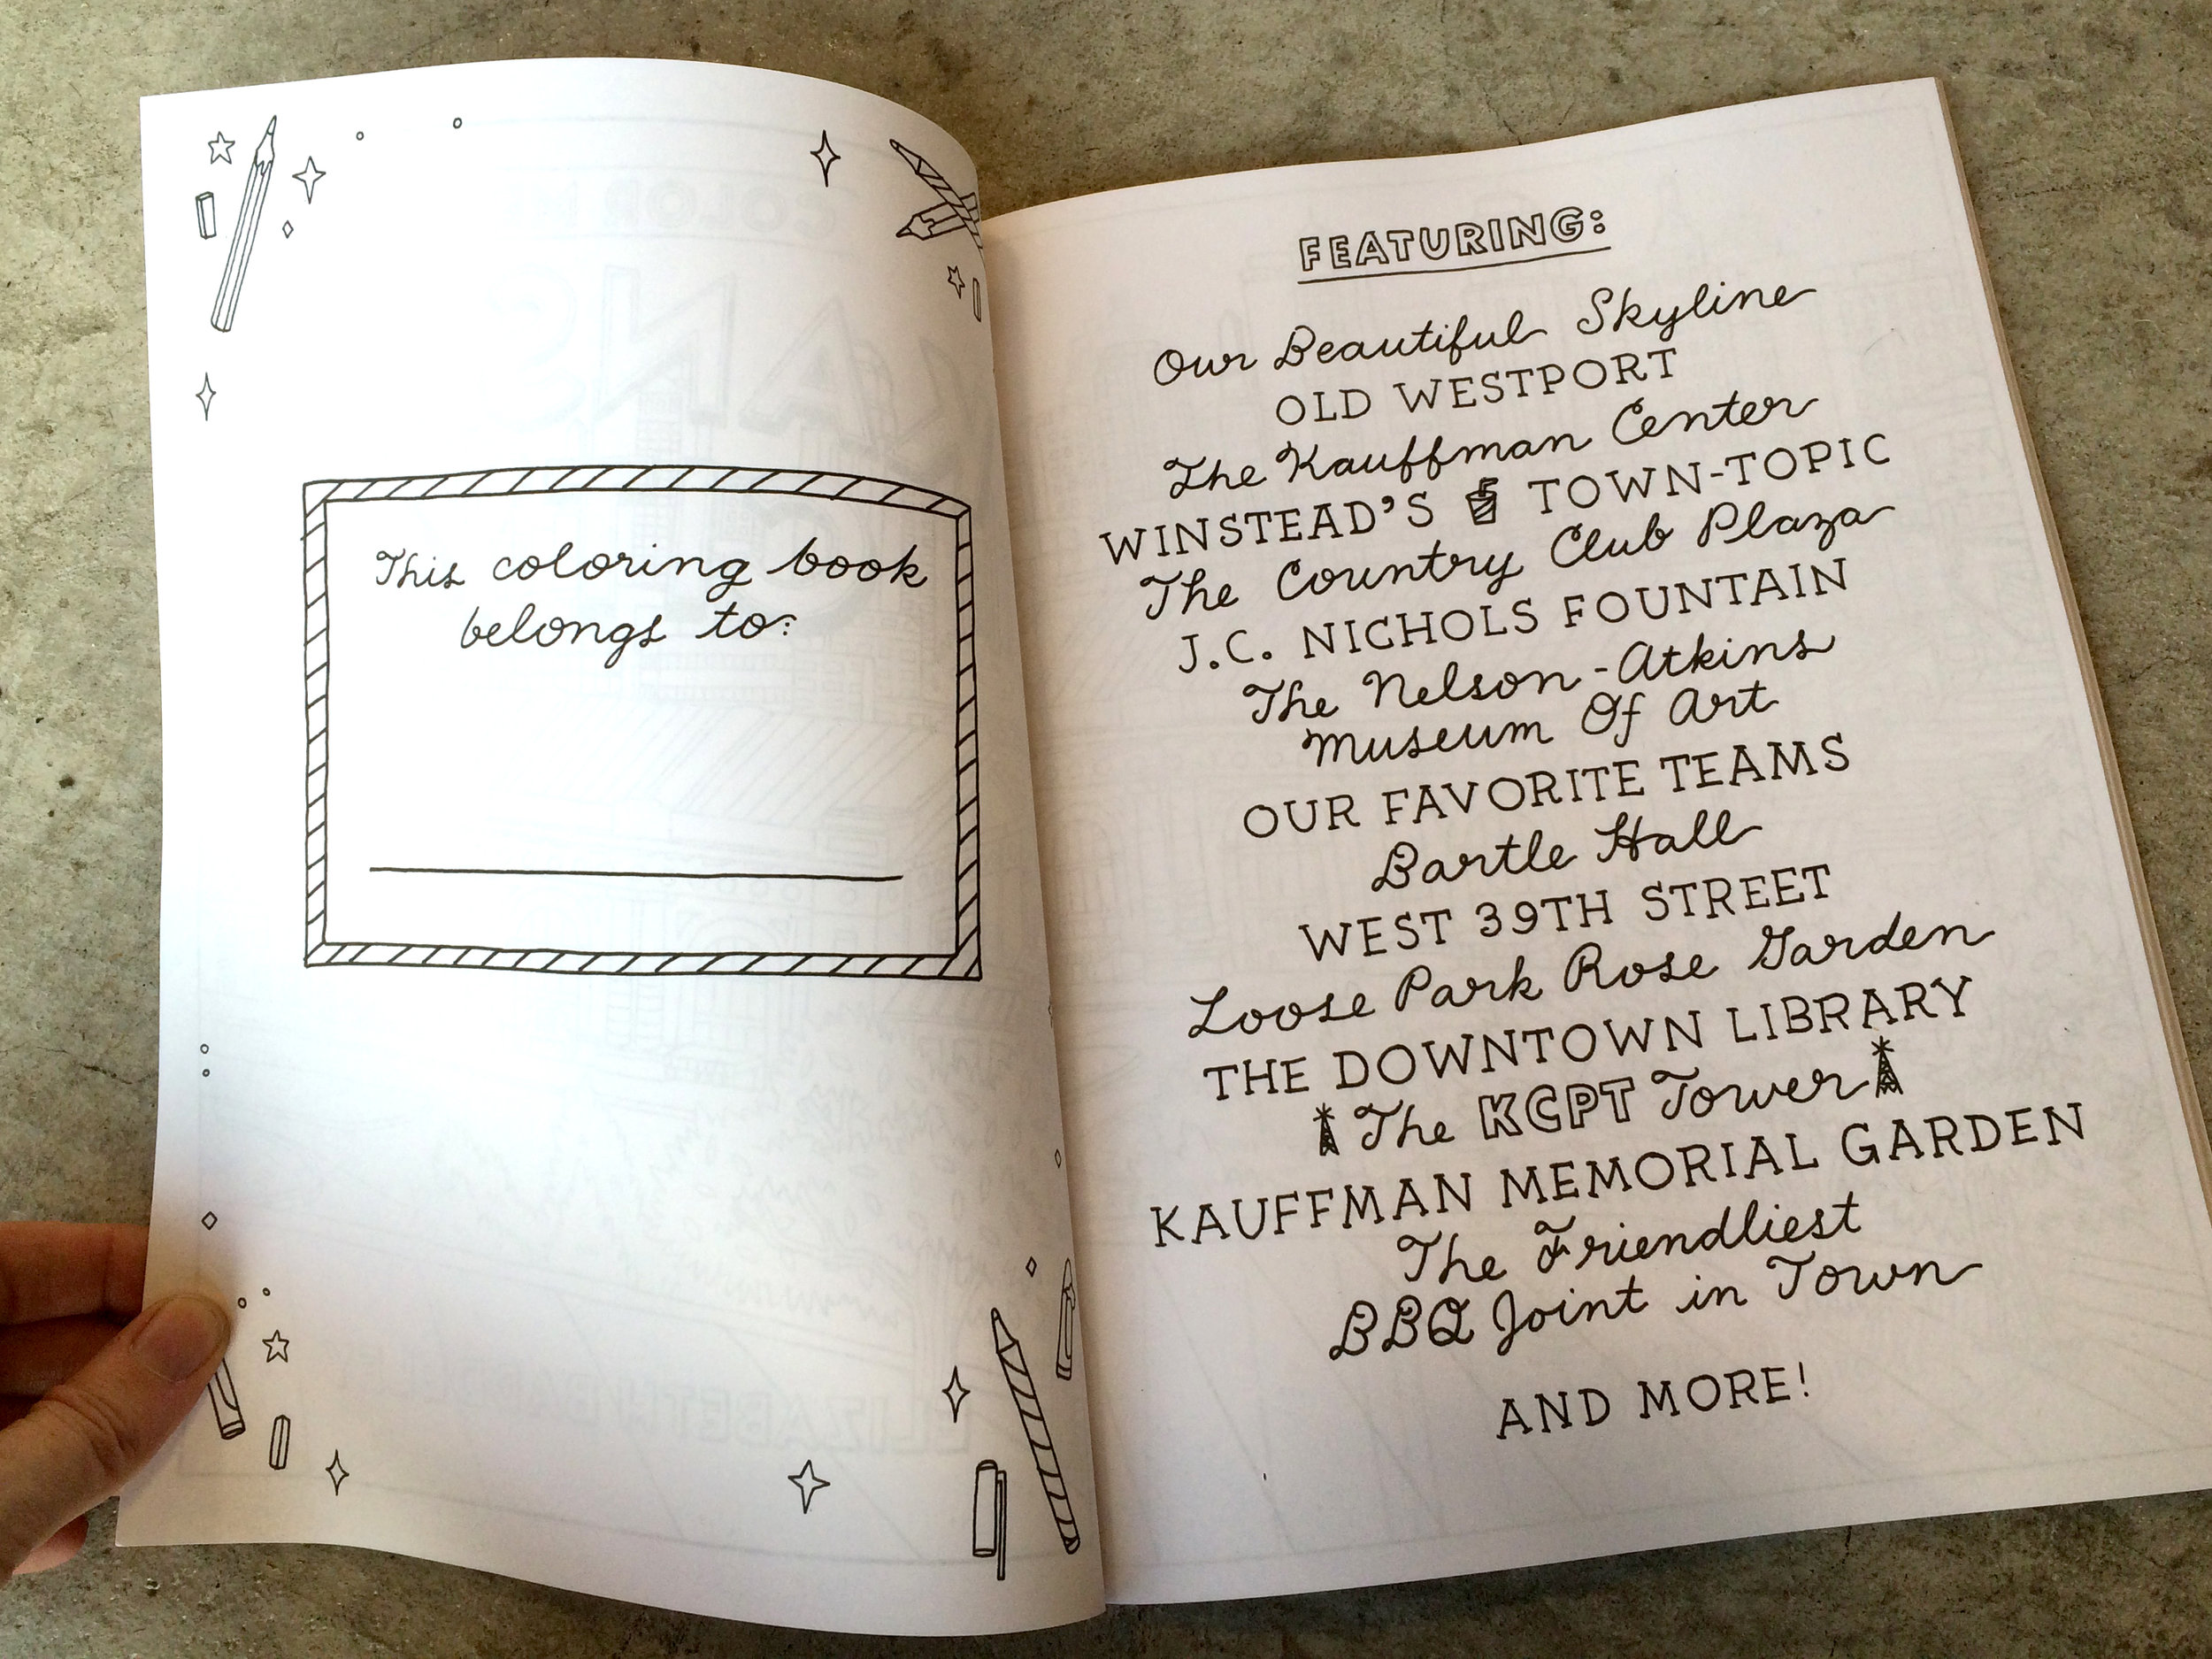 This coloring book
belongs to:
FEATURING:
Our Beautiful Skyline
OLD WESTPORT
The Kauffman Center
WINSTEAD'S TOWN-TOPIC
The Country Club Plaza
J.C. NICHOLS FOUNTAIN
The Nelson-Atkins
Museum Of Art
OUR FAVORITE TEAMS
Bartle Hall
WEST 39TH STREET
Loose Park Rose Garden
THE DOWNTOWN LIBRARY
The KCPT Tower
KAUFFMAN MEMORIAL GARDEN
The Friendliest
BBQ Joint in Town
AND MORE!